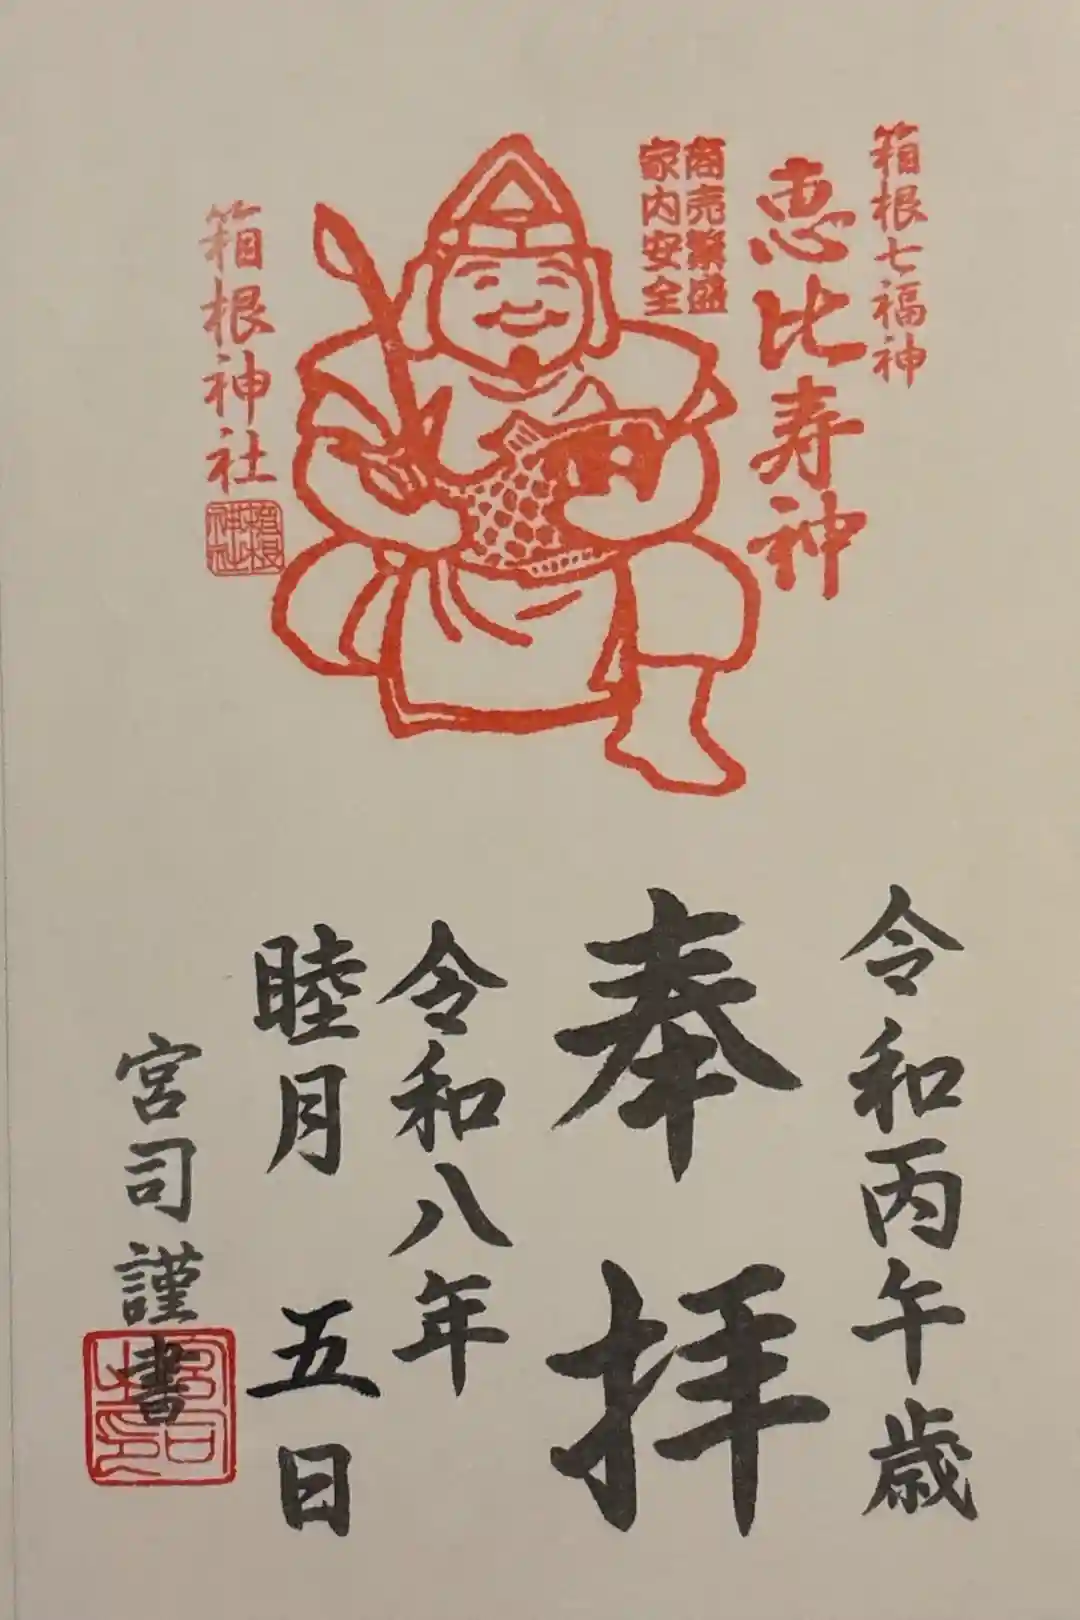 箱根七福神
恵比寿神
商売繁盛
家内安全
箱根神社
箱根
神社
令和丙午歳
奉拝
令和八年
睦月 五日
宮司謹書